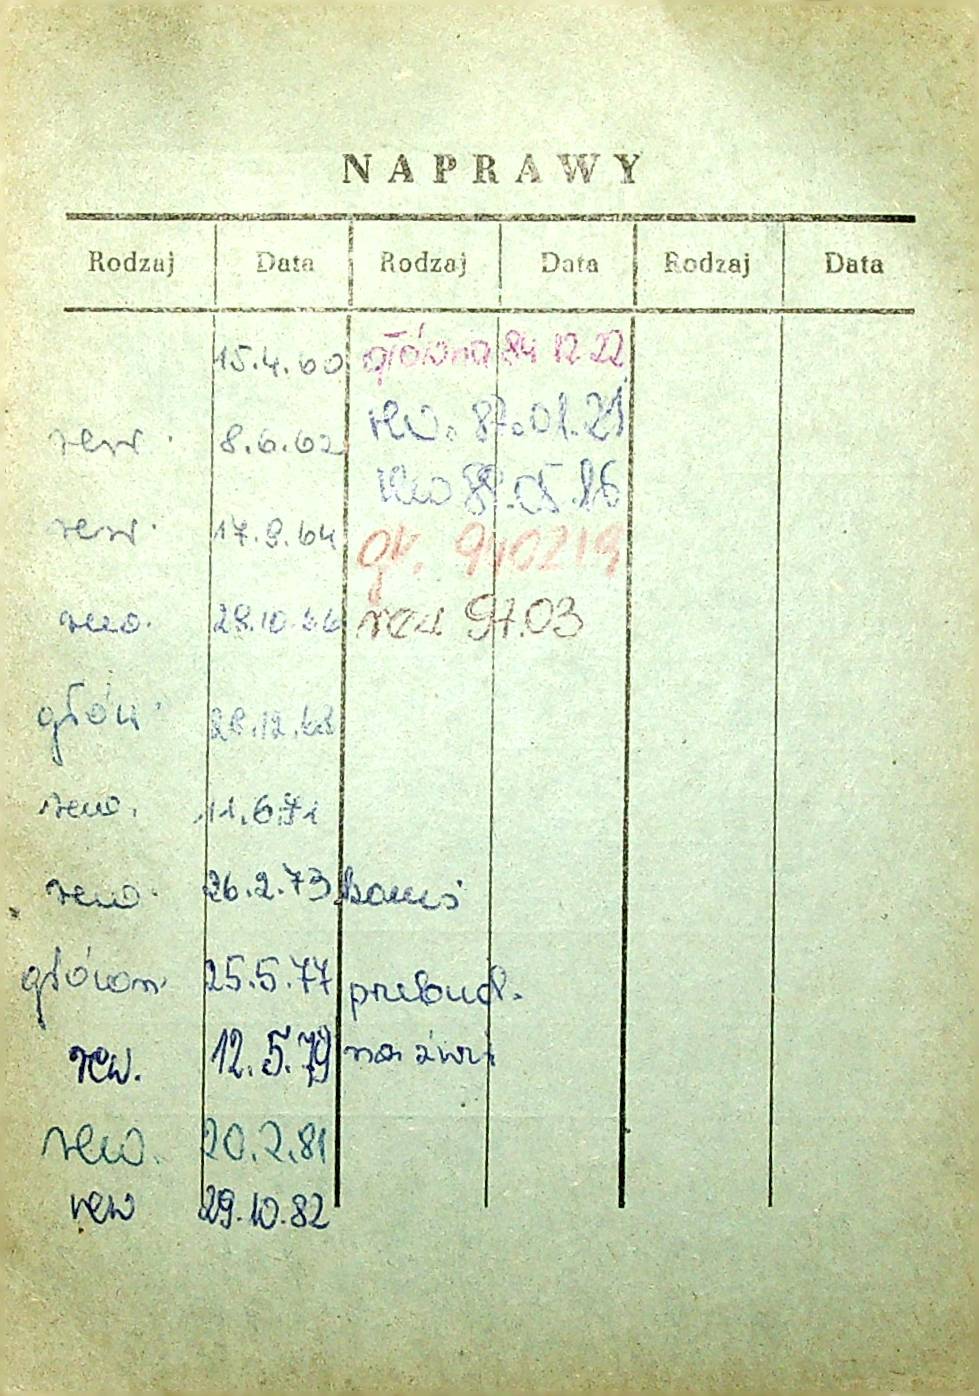 NAPRAWY
Rodzaj Data Rodzaj Data Rodzaj Data
15.4.60 główna 84 12 22
rew. 8.6.62 rew. 87.01.21
rew. 17.9.64 rew 89.05.16
gł. 940219
rew. 28.10.66 rew 97.03
główn. 28.12.68
rew. 11.6.71
rew. 26.2.73
główn. 25.5.77 przebud.
rew. 12.5.79 na
rew. 20.2.81
rew 29.10.82